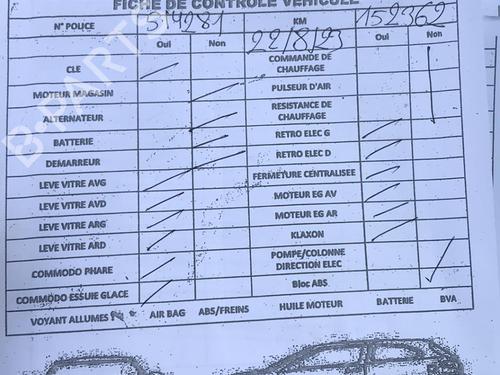 FICHE DE CONTROLE VEHICULE
N° POLICE 514281 KM 152362
Oui Non 22/8/23 Oui Non
CLE COMMANDE DE CHAUFFAGE
MOTEUR MAGASIN PULSEUR D'AIR
ALTERNATEUR RESISTANCE DE CHAUFFAGE
BATTERIE RETRO ELEC G
DEMARREUR RETRO ELEC D
LEVE VITRE AVG FERMETURE CENTRALISEE
LEVE VITRE AVD MOTEUR EG AV
LEVE VITRE ARG MOTEUR EG AR
LEVE VITRE ARD KLAXON
COMMODO PHARE POMPE/COLONNE DIRECTION ELEC
COMMODO ESSUIE GLACE Bloc ABS
VOYANT ALLUMES AIR BAG ABS/FREINS HUILE MOTEUR BATTERIE BVA
B-PARTS